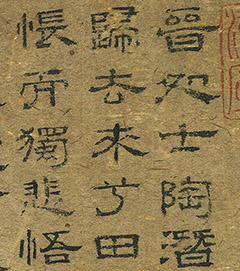 晉処士陶潛
歸去来兮田
悵而獨悲悟